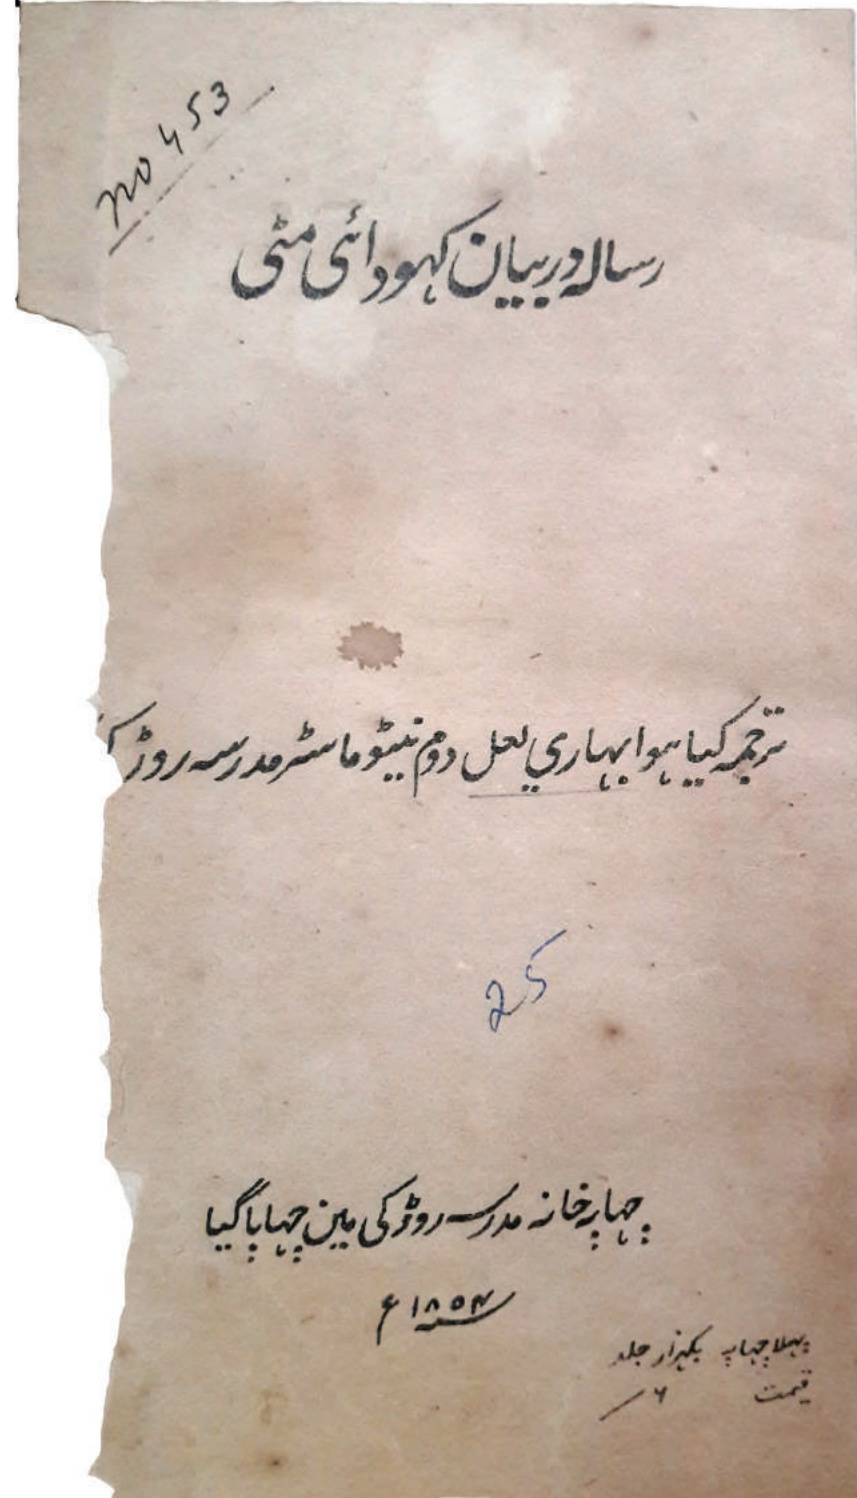 no 453
رسالہ در بیان کہودائی مٹی
ترجمہ کیا ہوا بہاري لعل دوم نیٹو ماسٹر مدرسہ روڑ
25
چہاپہ خانہ مدرسہ روڑکی مین چہاپا گیا
سنہ ۱۸۵۴ع
پہلا چہاپہ یکہزار جلد
قیمت ۶/